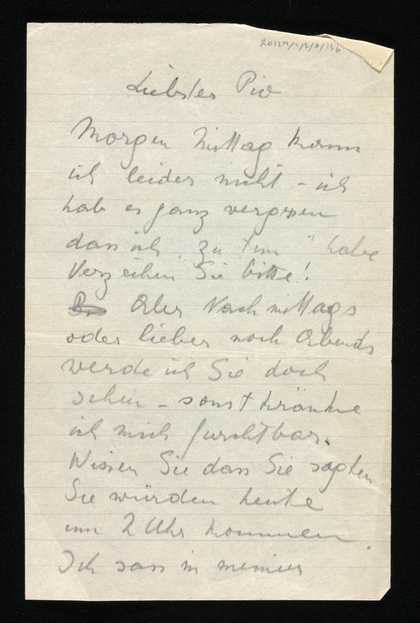 Liebster Pio
Morgen Mittag kann
ich leider nicht – ich
hab es ganz vergessen
dass ich „zu tun" habe
Verzeihen Sie bitte!
Aber Nachmittags
oder lieber noch Abends
werde ich Sie doch
sehen – sonst kränke
ich mich furchtbar.
Wissen Sie dass Sie sagten
Sie würden heute
um 2 Uhr kommen.
Ich sass in meiner